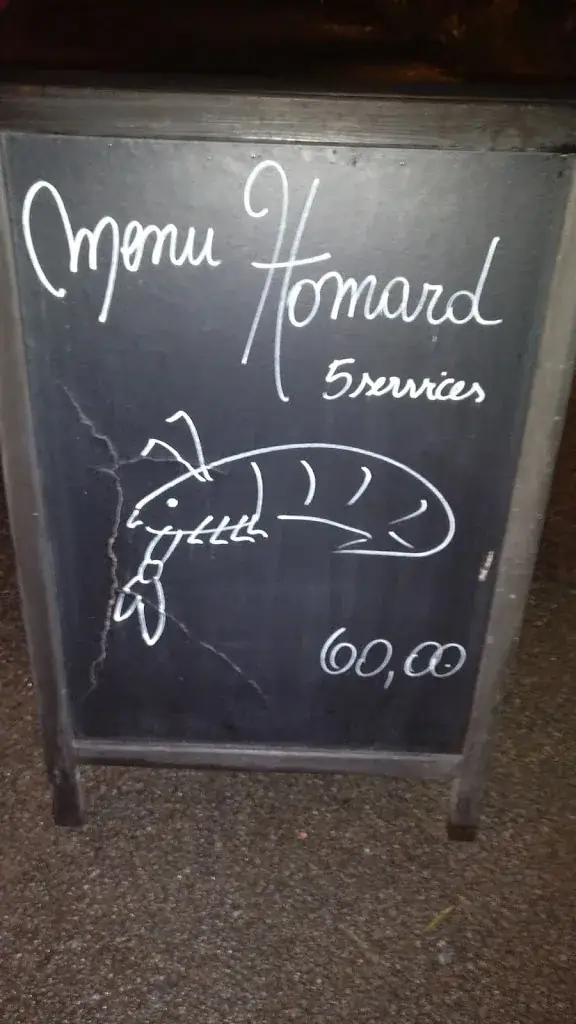 Menu Homard
5 services
60,00